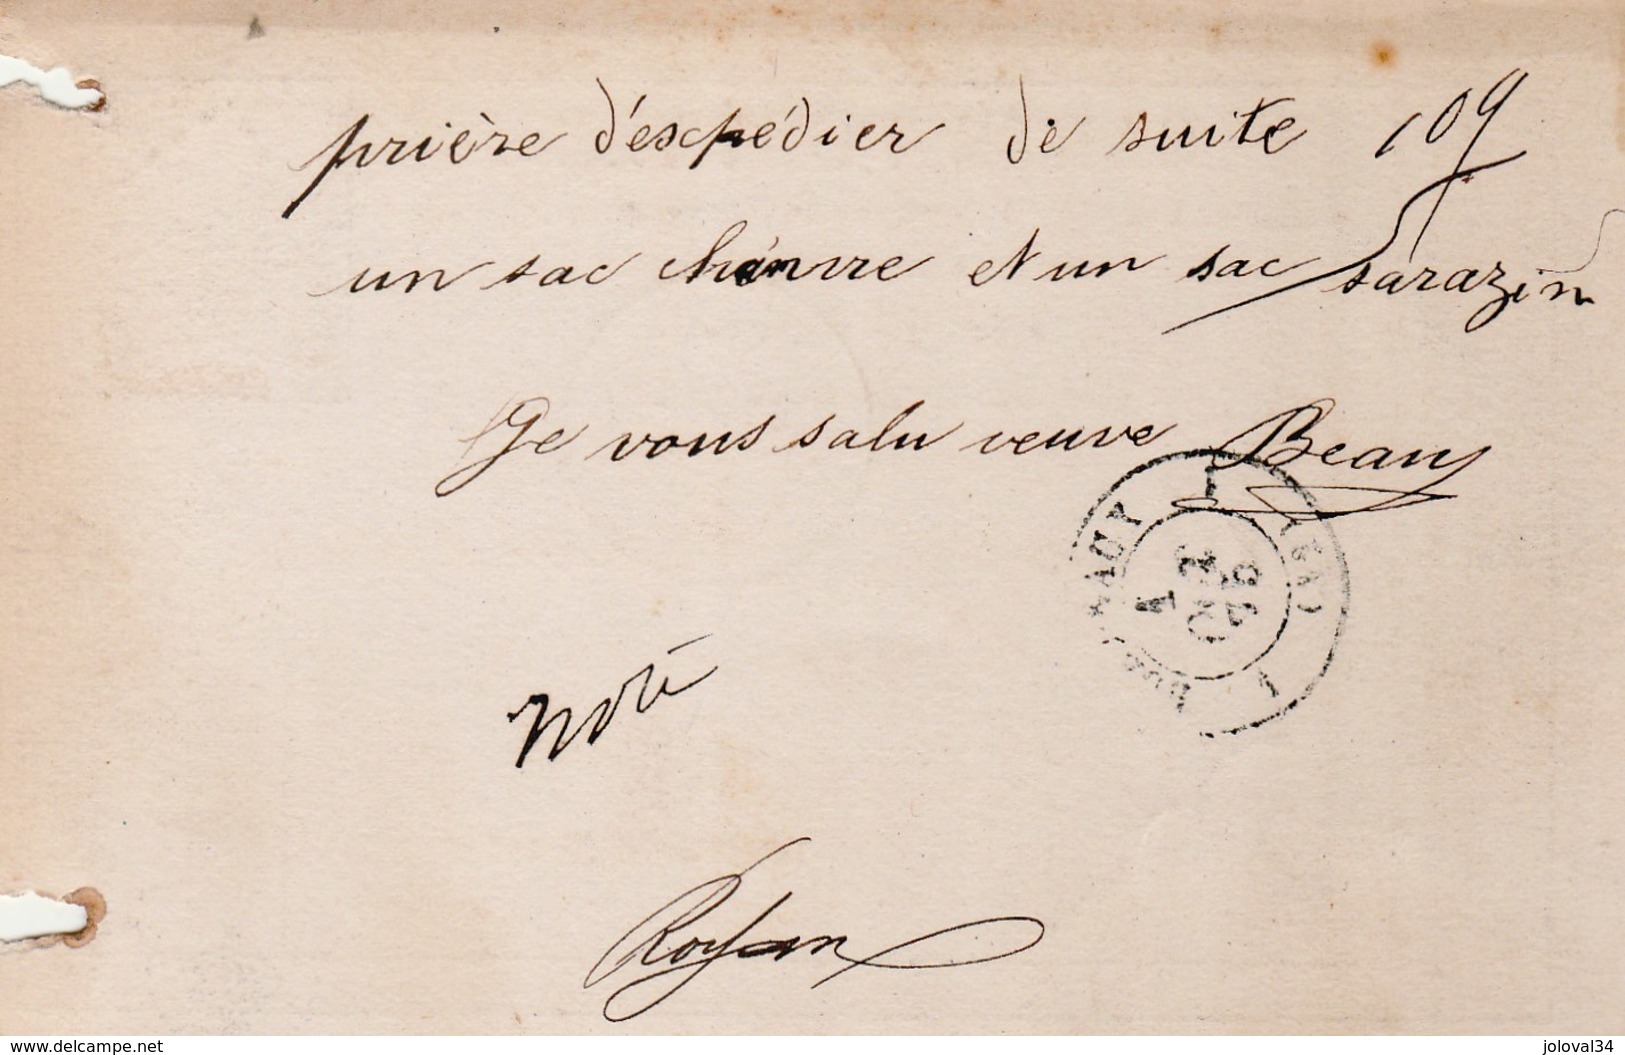 prière d'éscpédier de suite 109
un sac chénvre et un sac sarazin
Je vous salu veuve Beauy
noté
Royan
www.delcampe.net
joloval34